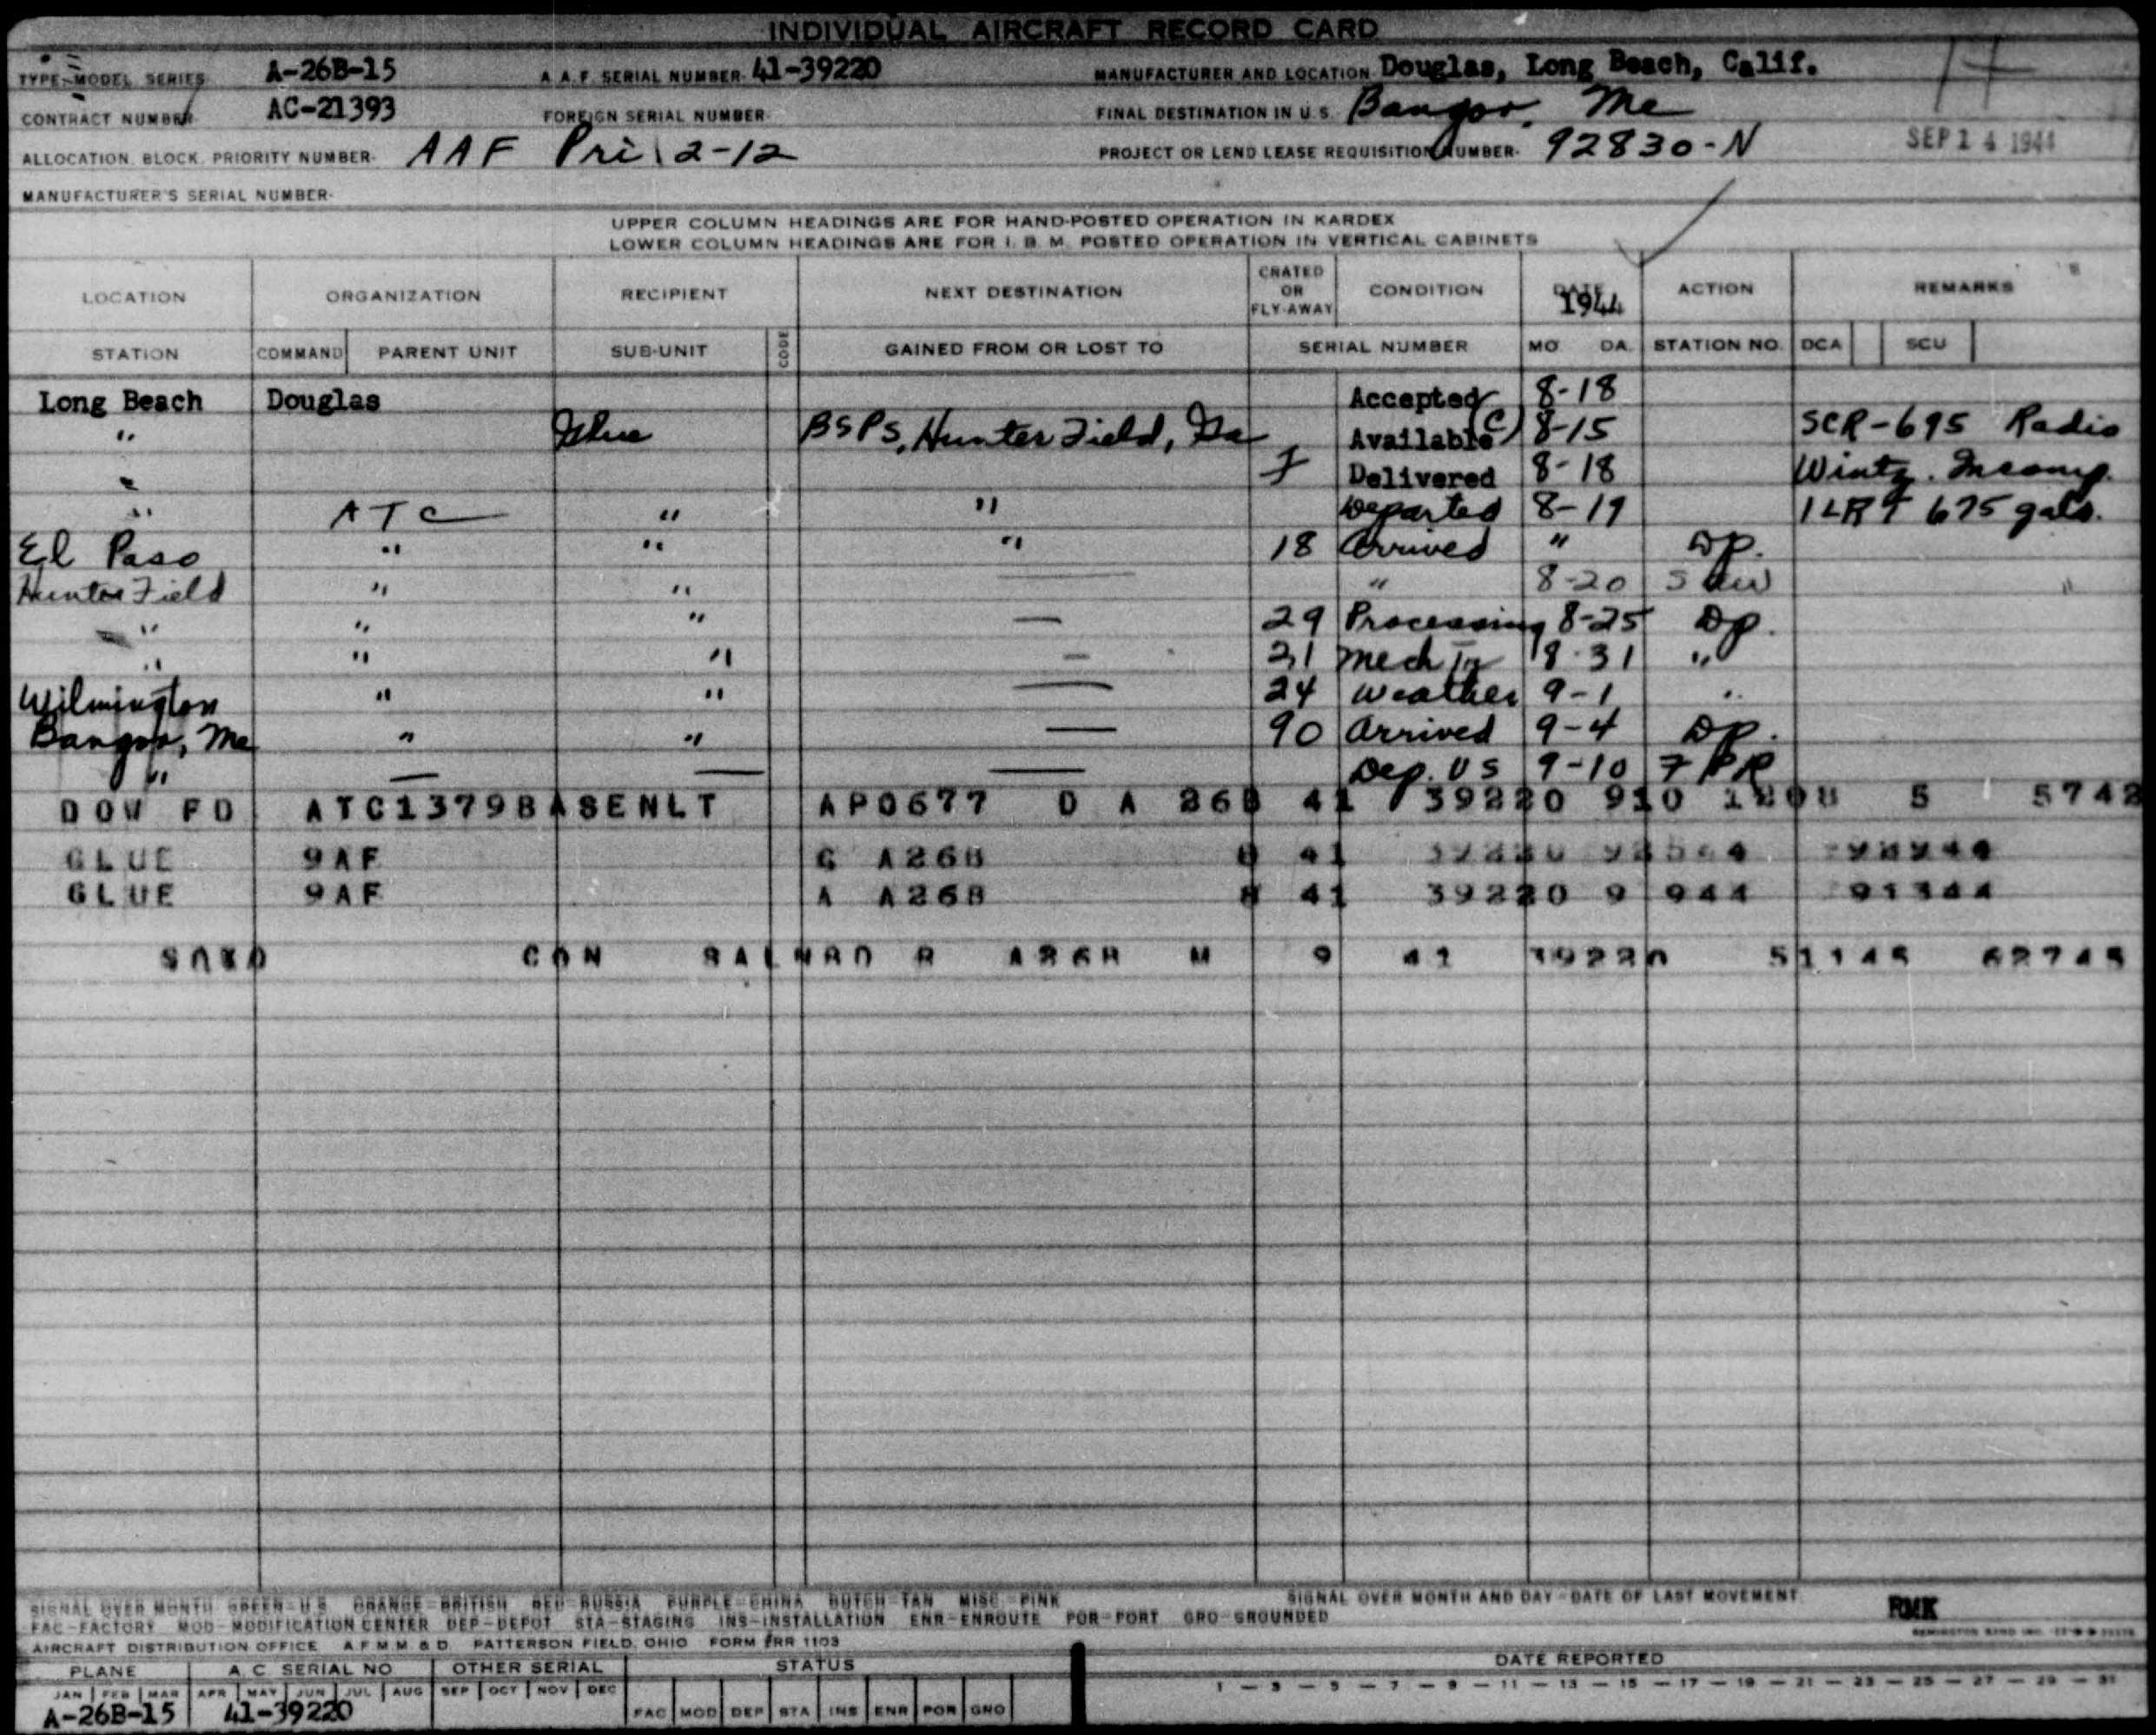 INDIVIDUAL AIRCRAFT RECORD CARD
TYPE-MODEL SERIES A-26B-15 A.A.F. SERIAL NUMBER- 41-39220 MANUFACTURER AND LOCATION Douglas, Long Beach, Calif.
CONTRACT NUMBER AC-21393 FOREIGN SERIAL NUMBER- FINAL DESTINATION IN U.S. Bangor, Me
ALLOCATION BLOCK PRIORITY NUMBER- AAF Pri 2-12 PROJECT OR LEND LEASE REQUISITION NUMBER- 92830-N SEP 14 1944
MANUFACTURER'S SERIAL NUMBER-
UPPER COLUMN HEADINGS ARE FOR HAND-POSTED OPERATION IN KARDEX
LOWER COLUMN HEADINGS ARE FOR I.B.M. POSTED OPERATION IN VERTICAL CABINETS
LOCATION ORGANIZATION RECIPIENT NEXT DESTINATION CRATED OR FLY-AWAY CONDITION DATE 1944 ACTION REMARKS
STATION COMMAND PARENT UNIT SUB-UNIT CODE GAINED FROM OR LOST TO SERIAL NUMBER MO DA. STATION NO. DCA SCU
Long Beach Douglas Accepted 8-18
" Glue BSPS, Hunter Field, Ga Available (C) 8-15 SCR-695 Radio
" F Delivered 8-18 Wintz. Incomp.
" ATC " " Departed 8-19 1LRT 675 gals.
El Paso " " " 18 Arrived " Dp.
Hunter Field " " — " 8-20
" " " — 29 Processing 8-25 Dp.
" " " — 31 Mech 8-31 "
Wilmington " " — 24 Weather 9-1 "
Bangor, Me " " — 90 Arrived 9-4 Dp.
" — — — Dep. US 9-10
DOW FD ATC1379BASENLT APO677 D A 26B 41 39220 910 S 5742
GLUE 9AF G A26B 41
GLUE 9AF A A26B 41 39220 9 944 91344
CON SALNBO R A26B M 9 41 39220 51145 62745
SIGNAL OVER MONTH GREEN=U.S. ORANGE=BRITISH RED=RUSSIA PURPLE=CHINA DUTCH=TAN MISC=PINK SIGNAL OVER MONTH AND DAY=DATE OF LAST MOVEMENT
FAC-FACTORY MOD-MODIFICATION CENTER DEP-DEPOT STA-STAGING INS-INSTALLATION ENR-ENROUTE POR-PORT GRO-GROUNDED RMK
AIRCRAFT DISTRIBUTION OFFICE A.F.M.M. & D. PATTERSON FIELD, OHIO FORM #RR 1103
PLANE A.C. SERIAL NO OTHER SERIAL STATUS DATE REPORTED
JAN FEB MAR APR MAY JUN JUL AUG SEP OCT NOV DEC 1 — 3 — 5 — 7 — 9 — 11 — 13 — 15 — 17 — 19 — 21 — 23 — 25 — 27 — 29 — 31
A-26B-15 41-39220 FAC MOD DEP STA INS ENR POR GRO